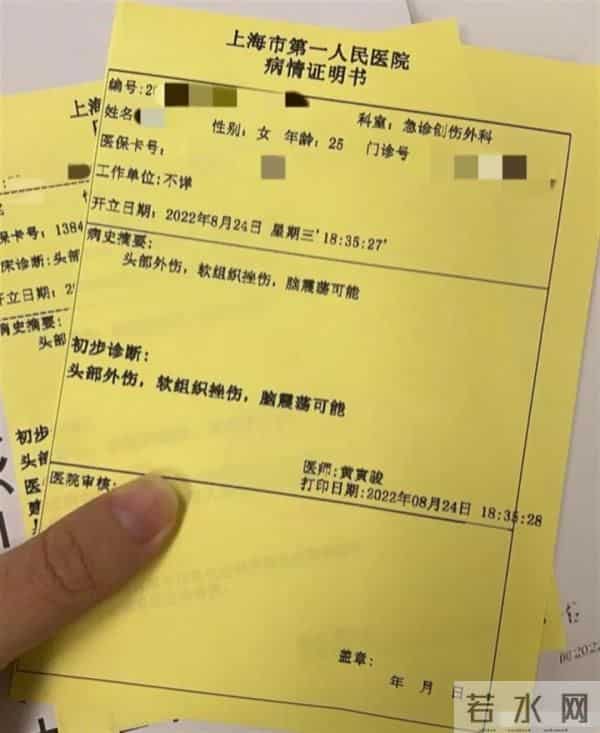 上海市第一人民医院
病情证明书
编号:2
姓名
科室: 急诊创伤外科
性别: 女 年龄: 25
医保卡号:
门诊号
工作单位:不详
开立日期: 2022年8月24日 星期三'18:35:27'
病史摘要:
头部外伤, 软组织挫伤, 脑震荡可能
初步诊断:
头部外伤, 软组织挫伤, 脑震荡可能
医师:黄寅骏
医院审核:
打印日期:2022年08月24日 18:35:28
盖章:
年 月 日
上海
保卡号: 1384
床诊断:头部
开立日期: 2
病史摘要:
头部
初步
头部
医
若水网